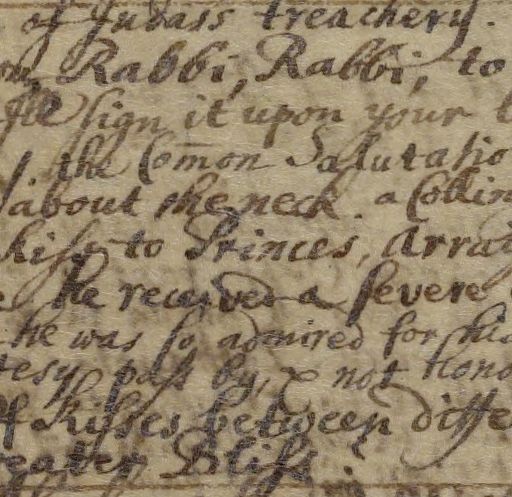 of Judass treachery.
Rabbi, Rabbi, to
sign it upon your
the Com̄on Salutatio
about the neck. a Collin
to Princes, Arrai
he received a severe
he was so admired for his
tesy past by, & not hono
Of Kisses between diffe
reater Bliss.